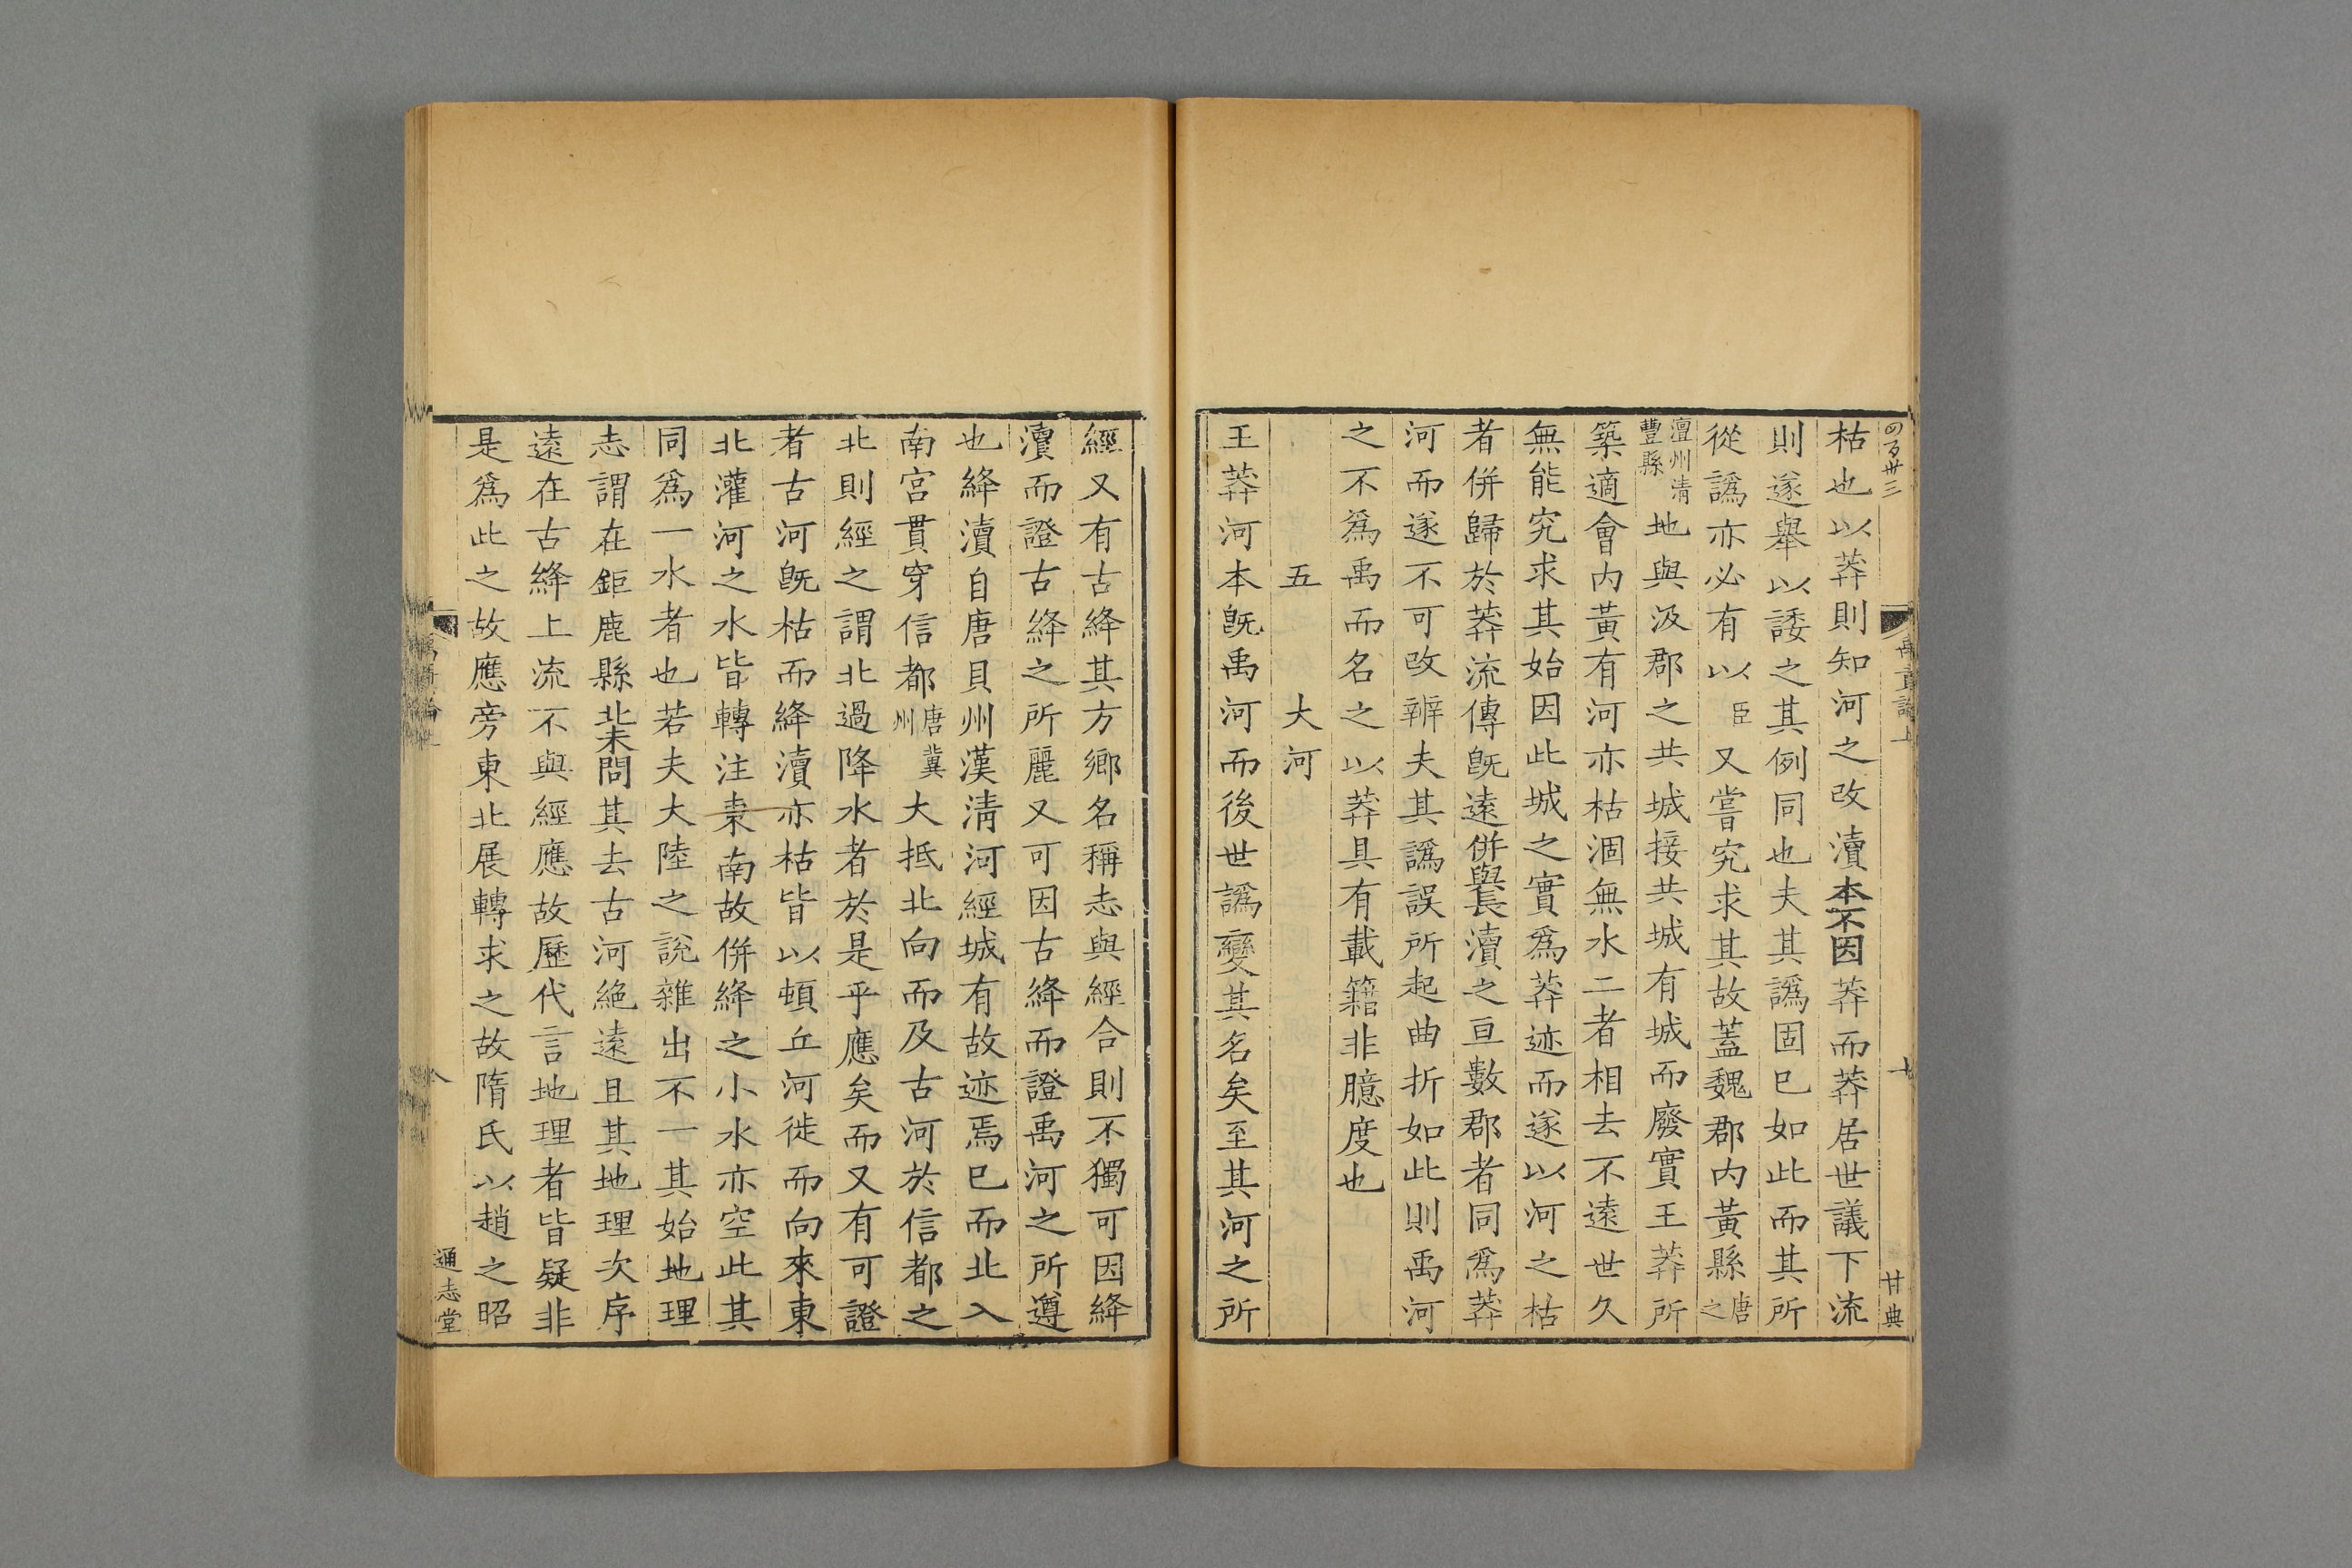 四百卅三
禹貢論上
七
廿典
枯也以莽則知河之改瀆本不因莽而莽居世議下流
則遂舉以諉之其例同也夫其譌固已如此而其所
從譌亦必有以臣又嘗究求其故蓋魏郡内黃縣唐之
澶州清豐縣地與汲郡之共城接共城有城而廢實王莽所
築適會内黃有河亦枯涸無水二者相去不遠世久
無能究求其始因此城之實爲莽迹而遂以河之枯
者併歸於莽流傳旣遠併與長瀆之亘數郡者同爲莽
河而遂不可改辨夫其譌誤所起曲折如此則禹河
之不爲禹而名之以莽具有載籍非臆度也
五　大河
王莽河本旣禹河而後世譌變其名矣至其河之所
經又有古絳其方鄉名稱志與經合則不獨可因絳
瀆而證古絳之所麗又可因古絳而證禹河之所遵
也絳瀆自唐貝州漢淸河經城有故迹焉已而北入
南宮貫穿信都唐冀州大抵北向而及古河於信都之
北則經之謂北過降水者於是乎應矣而又有可證
者古河旣枯而絳瀆亦枯皆以頓丘河徙而向來東
北灌河之水皆轉注東南故併絳之小水亦空此其
同爲一水者也若夫大陸之說雜出不一其始地理
志謂在鉅鹿縣北未問其去古河絶遠且其地理次序
遠在古絳上流不與經應故歷代言地理者皆疑非
是爲此之故應旁東北展轉求之故隋氏以趙之昭
八
通志堂